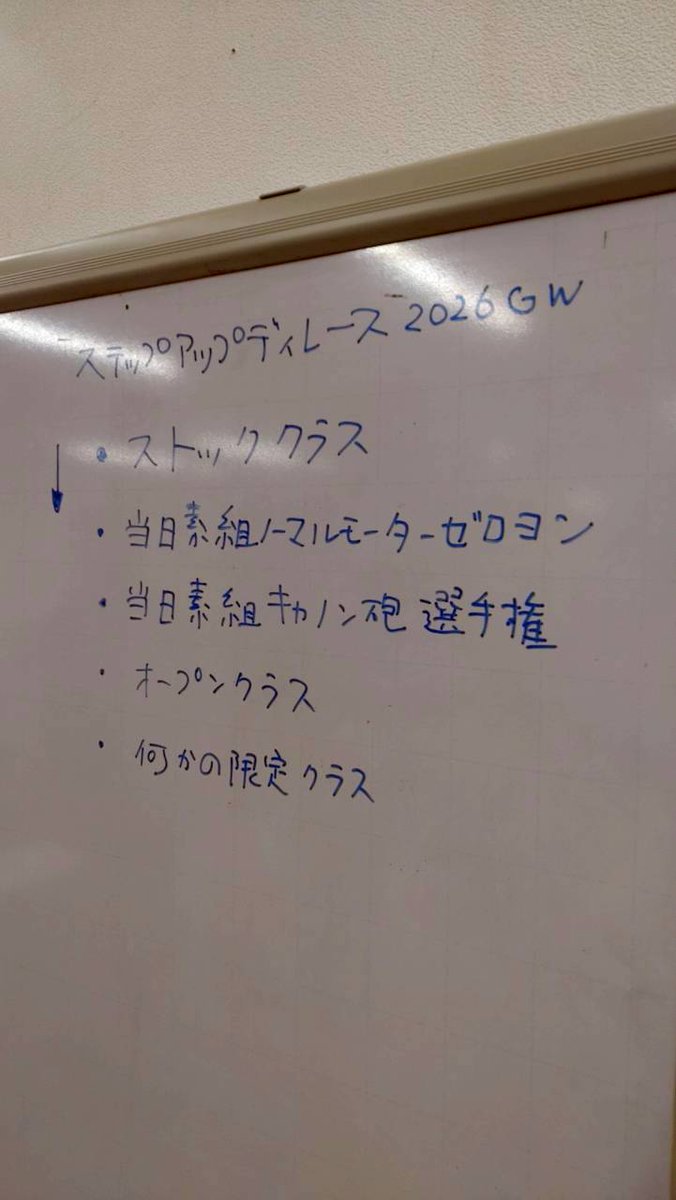 ステップアップディレース 2026 GW
↓ ・ストッククラス
・当日素組ノーマルモーターゼロヨン
・当日素組キャノン砲選手権
・オープンクラス
・何かの限定クラス